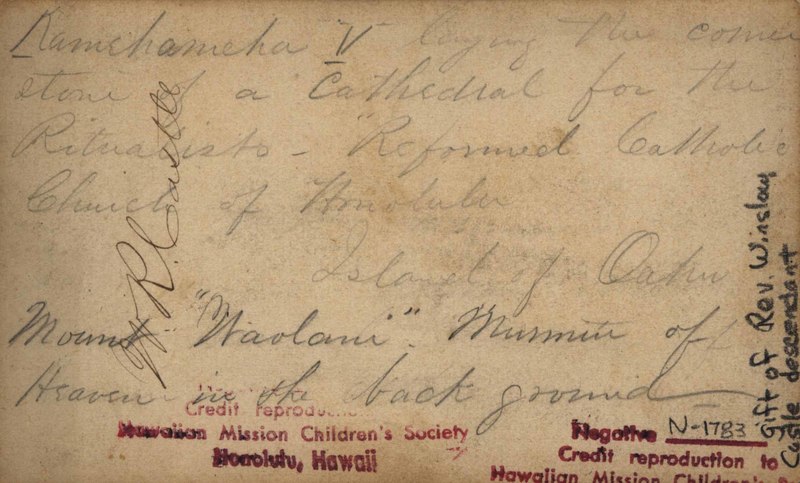 Kamehameha V laying the corner
stone of a Cathedral for the
Ritualists - "Reformed Catholic
Church of Honolulu
Island of Oahu
Mount "Waolani". Murmur of
Heaven in the back ground
W. R. Castle
Gift of Rev. Winslow
Castle descendant
Credit reproduction
Hawaiian Mission Children's Society
Honolulu, Hawaii
Negative N-1783
Credit reproduction to
Hawaiian Mission Children's